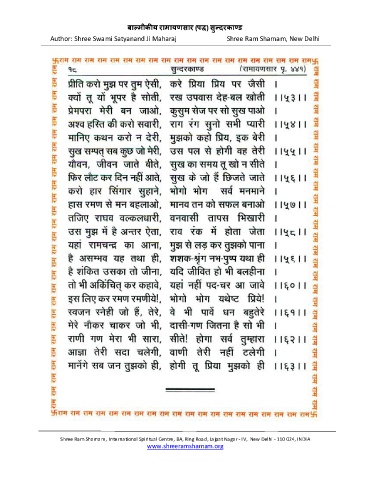 बाल्मीकीय रामायणसार (पद्य) सुन्दरकाण्ड
Author: Shree Swami Satyanand Ji Maharaj Shree Ram Sharnam, New Delhi
卐राम राम राम राम राम राम राम राम राम राम राम राम राम राम राम राम राम राम राम राम राम卐
१८ सुन्दरकाण्ड (रामायणसार पृ. ४४१)
प्रीति करो मुझ पर तुम ऐसी, करे प्रिया प्रिय पर जैसी ।
क्यों तू यों भूपर है सोती, रख उपवास देह-बल खोती ।।५३।।
प्रेमपरा मेरी बन जाओ, कुसुम सेज पर सो सुख पाओ ।
अश्व हस्ति की करो सवारी, राग रंग सुनो सभी प्यारी ।।५४।।
मानिए कथन करो न देरी, मुझको कहो प्रिय, इक बेरी ।
सुख सम्पत् सब कुछ जो मेरी, उस पल से होगी वह तेरी ।।५५।।
यौवन, जीवन जाते बीते, सुख का समय तू खो न सीते ।
फिर लौट कर दिन नहीं आते, सुख के जो हैं छिजते जाते ।।५६।।
करो हार सिंगार सुहाने, भोगो भोग सर्व मनमाने ।
हास रमण से मन बहलाओ, मानव तन को सफल बनाओ ।।५७।।
तजिए राघव वल्कलधारी, वनवासी तापस भिखारी ।
उस मुझ में है अन्तर ऐता, राव रंक में होता जेता ।।५८।।
यहां रामचन्द्र का आना, मुझ से लड़ कर तुझको पाना ।
है असम्भव यह तथा ही, शशक-श्रृंग नभ-पुष्प यथा ही ।।५९।।
है शंकित उसका तो जीना, यदि जीवित हो भी बलहीना ।
तो भी अकिंचित् कर कहावे, यहां नहीं पद-चर आ जावे ।।६०।।
इस लिए कर रमण रमणीये!, भोगो भोग यथेष्ट प्रिये! ।
स्वजन स्नेही जो हैं, तेरे, वे भी पावें धन बहुतेरे ।।६१।।
मेरे नौकर चाकर जो भी, दासी-गण जितना है सो भी ।
राणी गण मेरा भी सारा, सीते! होगा सर्व तुम्हारा ।।६२।।
आज्ञा तेरी सदा चलेगी, वाणी तेरी नहीं टलेगी ।
मानेंगे सब जन तुझको ही, होगी तू प्रिया मुझको ही ।।६३।।
卐राम राम राम राम राम राम राम राम राम राम राम राम राम राम राम राम राम राम राम राम राम卐
Shree Ram Sharnam, International Spiritual Centre, 8A, Ring Road, Lajpat Nagar - IV, New Delhi - 110 024, INDIA
www.shreeramsharnam.org